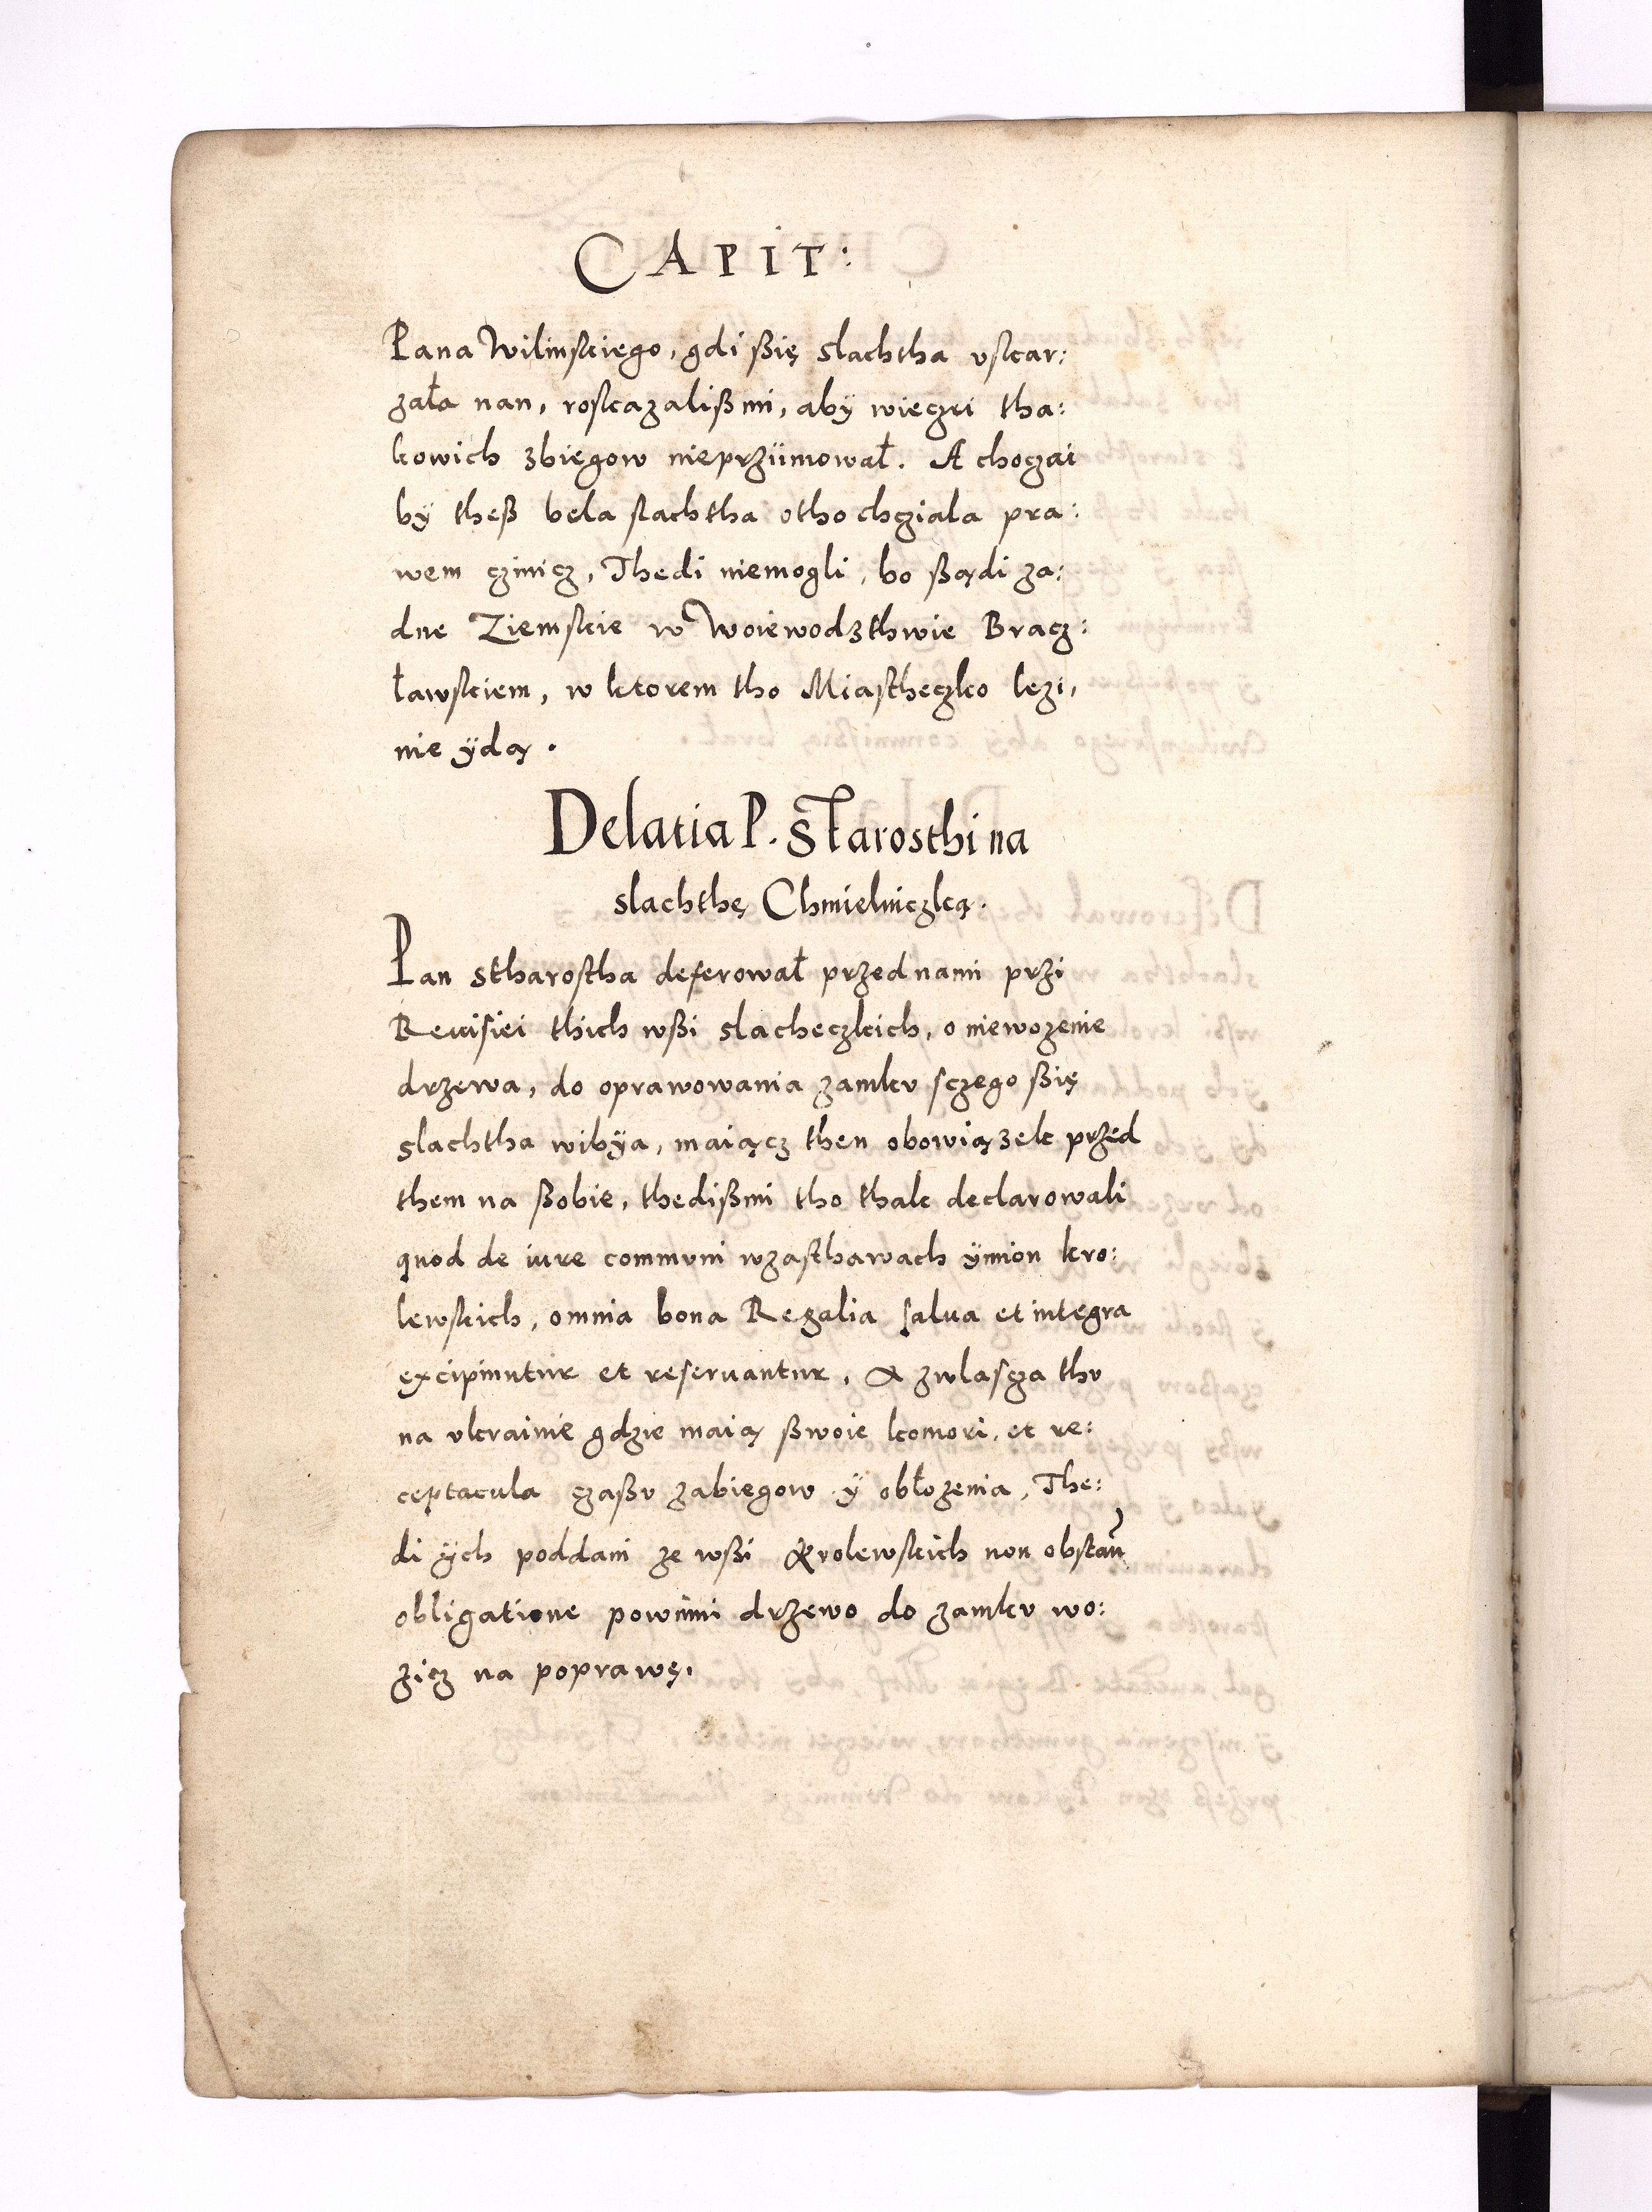 CAPIT:
Pana Wilinskiego, gdi ßię slachtha vskar:
zała nan, roskazalißmi, abÿ wieczei tha:
kowich zbiegow nieprziimował. A choczai
bÿ theß bela slachtha otho chcziala pra:
wem czinicz, Thedi niemogli, bo ßądi za:
dne Ziemskie w Woiewodzthwie Bracz:
ławskiem, w ktorem tho Miastheczko lezi,
nie ÿdą.
Delatia P. Starosthi na
slachthę Chmielniczką.
Pan stharostha deferował przed nami przi
Reuisiei thich wßi slacheczkich, o niewozenie
drzewa, do oprawowania zamku sczego ßię
slachtha wibÿa, maiącz then obowiązek przed
them na ßobie, thedißmi tho thak declarowali
quod de iure communi wzasthawach ÿmion kro:
lewskich, omnia bona Regalia salua et integra
excipiuntur et reseruantur, A zwlascza thv
na vkrainie gdzie maią ßwoie komori, et re:
ceptacula czaßv zabiegow ÿ obłozenia, The:
di ÿch poddani ze wßi Krolewskich non obstan
obligatione powinni drzewo do zamkv wo:
zicz na poprawę.